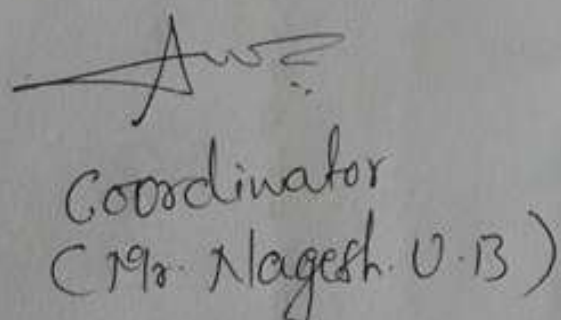 Coordinator
(Mr. Nagesh. U.B)